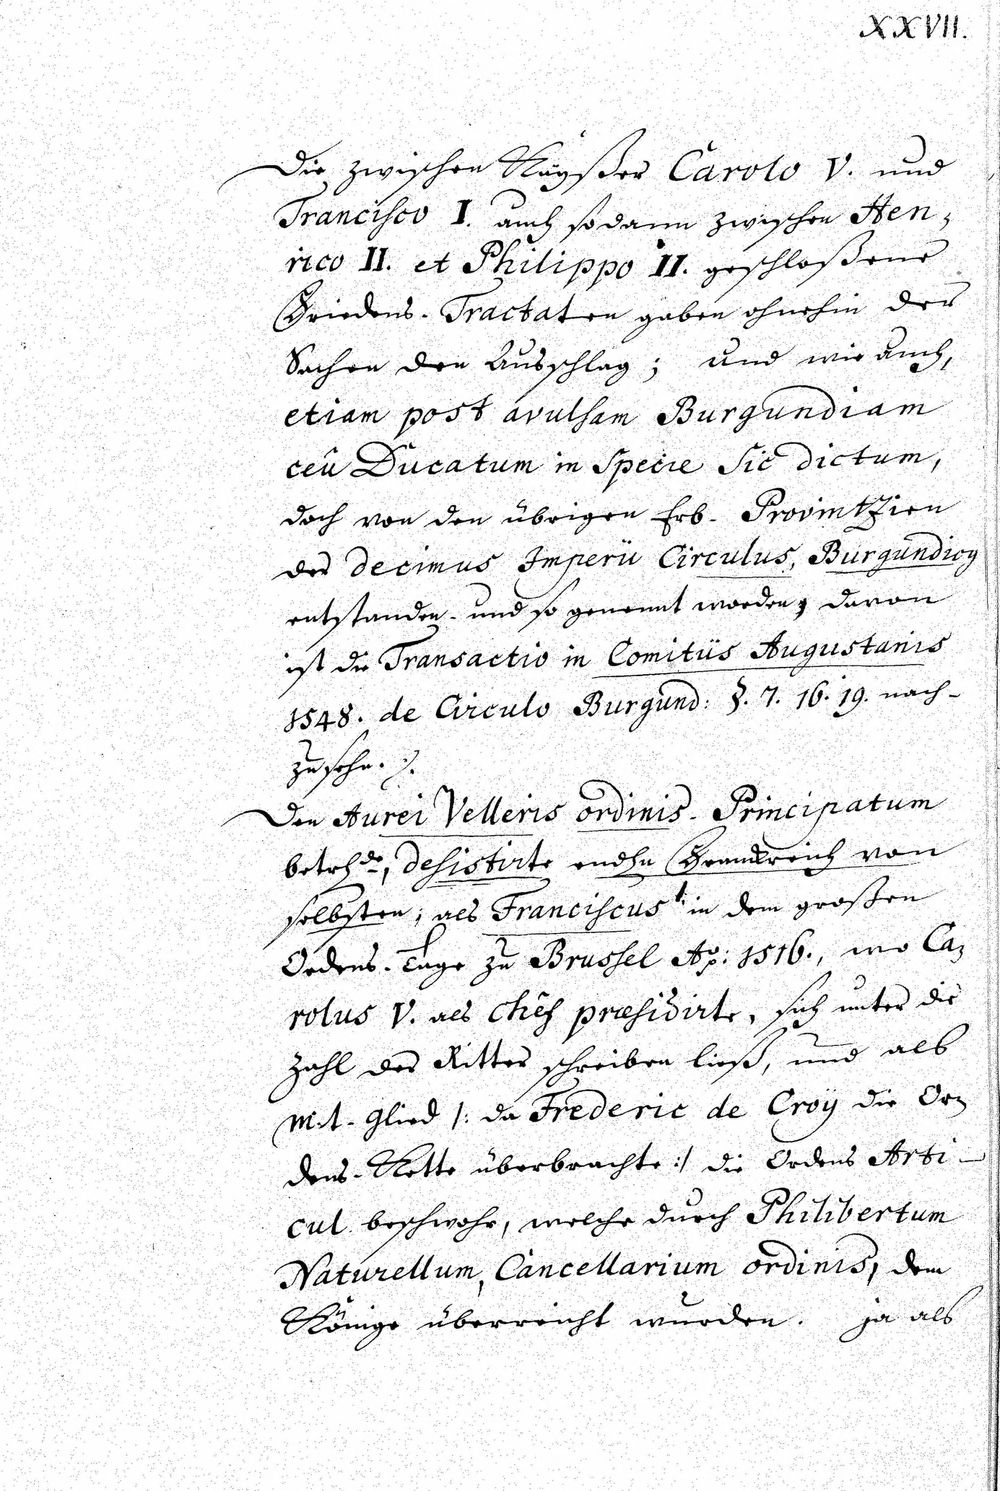 XXVII.
Die zwischen Kaÿßer Carolo V. und
Francisco I. auch sodann zwischen Hen,
rico II. et Philippo II. geschloßene
Friedens-Tractaten gaben ohnehin der
Sachen den Ausschlag; und wie auch,
etiam post avulsam Burgundiam
ceu Ducatum in Specie sic dictum,
doch von den übrigen Erb-Provintzien
der decimus Imperii Circulus, Burgundicg
entstanden- und so genennt worden, davon
ist die Transactio in Comitiis Augustanis
1548. de Circulo Burgund: §. 7. 16. 19. nach-
zusehn. /.
Den Aurei Velleris ordinis-Principatum
betrhde, desistirte endh Franckreich von
selbsten; als Franciscus 1. in dem großen
Ordens-Tage zu Brussel Ao: 1516., wo Ca,
rolus V. als chêf præsidirte, sich unter die
Zahl der Ritter schreiben ließ, und als
Mit-Glied /: da Frederic de Croÿ die Or,
dens-Kette überbrachte :/ die Ordens Arti-
cul beschwohr, welche durch Philibertum
Naturellum, Cancellarium ordinis, dem
Könige überreicht wurden. ja als